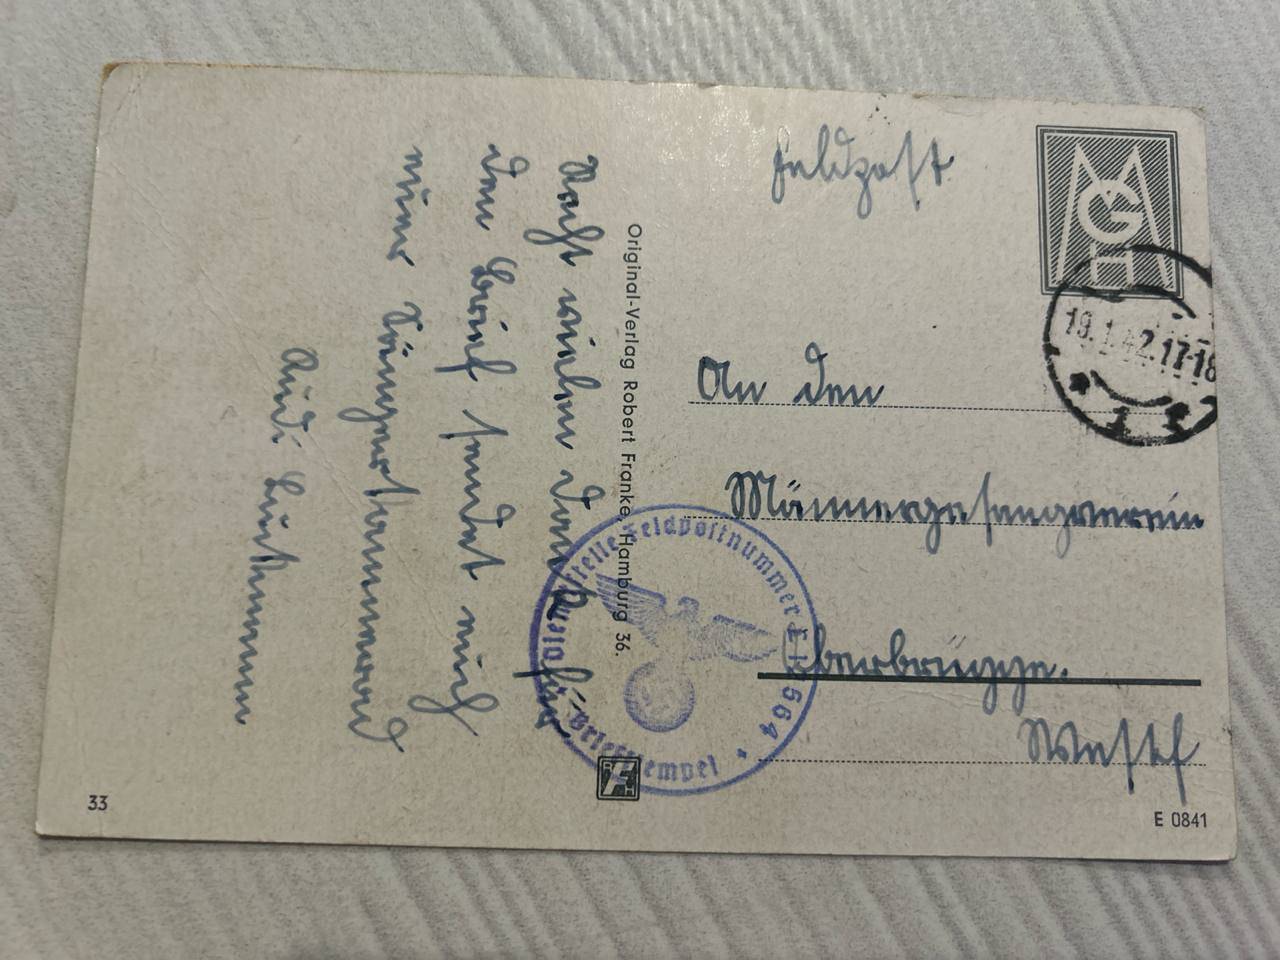 Feldpost
MGH
19.1.42.17-18
An den
Männergesangverein
Oberbrügge.
Westf
Dienststelle Feldpostnummer
564
Briefstempel
Original-Verlag Robert Franke, Hamburg 36.
Recht vielen Dank für
den Brief sendet euch
euer Sangesbruder
Rudi
33
E 0841